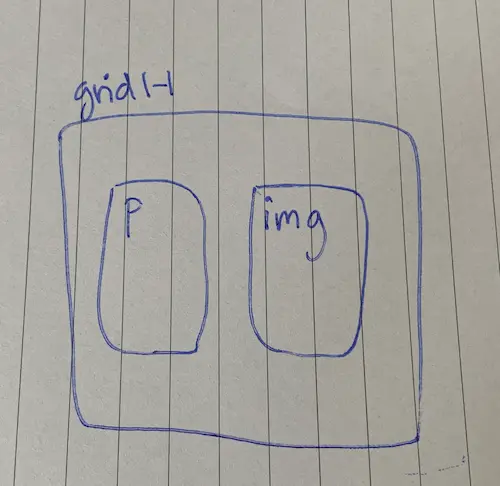 grid 1-1
p
img